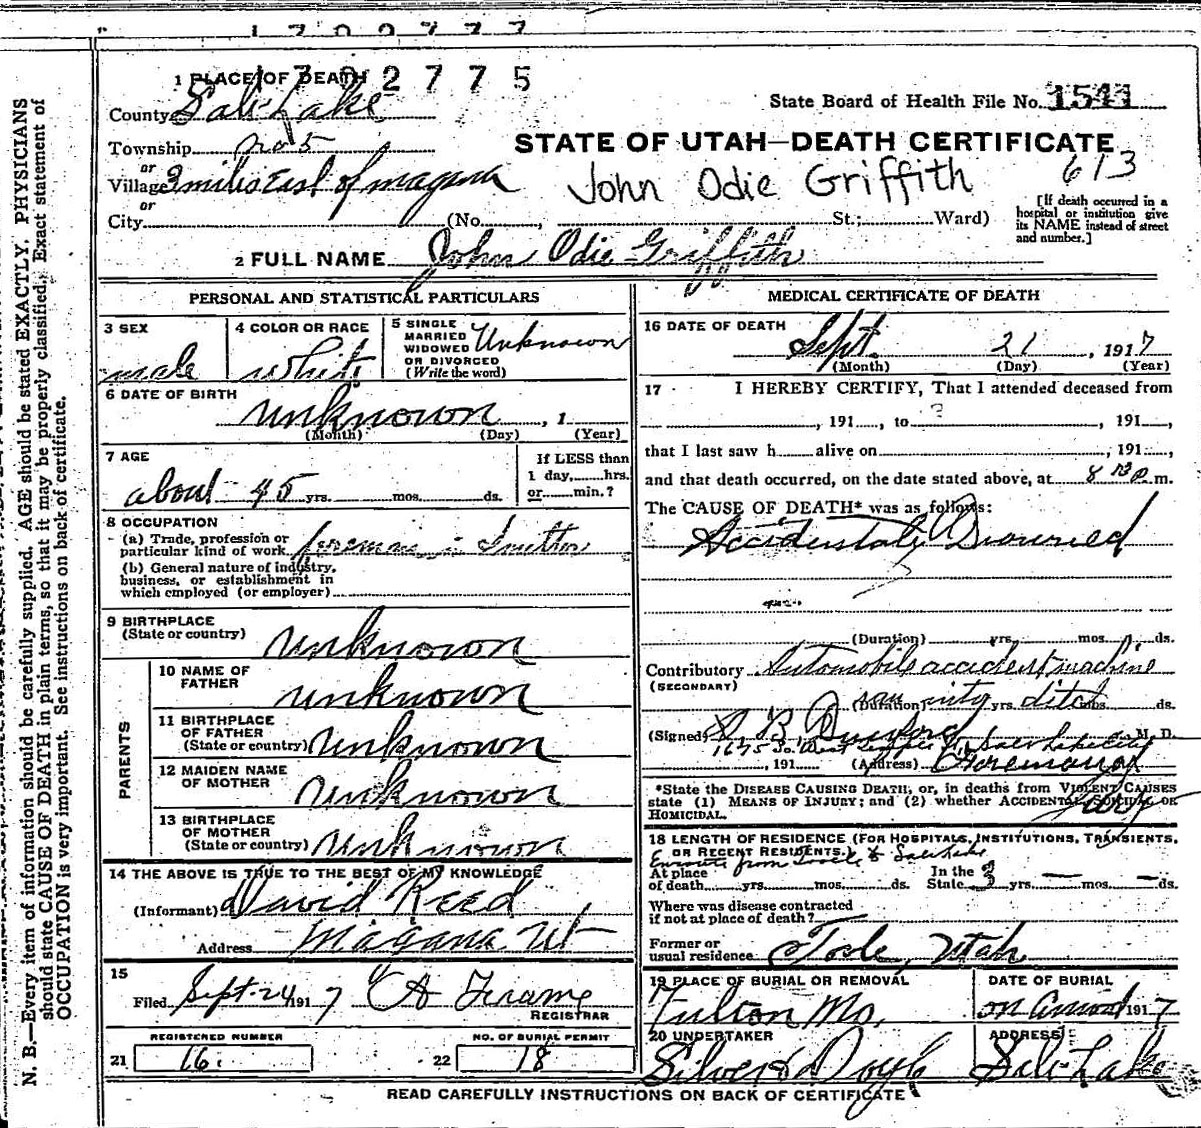 1702775
1 PLACE OF DEATH
State Board of Health File No. 1541
County Salt Lake
STATE OF UTAH—DEATH CERTIFICATE
Township No 5
613
or
Village 3 miles East of Magana
John Odie Griffith
or
City (No. St.; Ward)
[If death occurred in a
hospital or institution give
its NAME instead of street
and number.]
2 FULL NAME John Odie Griffith
PERSONAL AND STATISTICAL PARTICULARS
3 SEX
male
4 COLOR OR RACE
White
5 SINGLE
MARRIED
WIDOWED
OR DIVORCED
(Write the word)
Unknown
6 DATE OF BIRTH
unknown , 1
(Month) (Day) (Year)
7 AGE
about 45 yrs. mos. ds.
If LESS than
1 day, hrs.
or min.?
8 OCCUPATION
(a) Trade, profession or
particular kind of work foreman in Smelter
(b) General nature of industry,
business, or establishment in
which employed (or employer)
9 BIRTHPLACE
(State or country) unknown
PARENTS
10 NAME OF
FATHER unknown
11 BIRTHPLACE
OF FATHER
(State or country) unknown
12 MAIDEN NAME
OF MOTHER unknown
13 BIRTHPLACE
OF MOTHER
(State or country) unknown
14 THE ABOVE IS TRUE TO THE BEST OF MY KNOWLEDGE
(Informant) David Reed
Address Magana Ut
15
Filed Sept. 24 1917
REGISTRAR
REGISTERED NUMBER
21 16.
NO. OF BURIAL PERMIT
22 18
MEDICAL CERTIFICATE OF DEATH
16 DATE OF DEATH
Sept. 21 , 1917
(Month) (Day) (Year)
17 I HEREBY CERTIFY, That I attended deceased from
, 191 , to , 191 ,
that I last saw h alive on , 191 ,
and that death occurred, on the date stated above, at 8 P m.
The CAUSE OF DEATH* was as follows:
Accidentally Drowned
(Duration) yrs. mos. ds.
Contributory Automobile accident machine
(SECONDARY)
ran into ditch
(Duration) yrs. mos. ds.
(Signed) M. D.
1675 So. West Temple St. Salt Lake City
, 191 (Address) Foreman of
Jury
*State the DISEASE CAUSING DEATH, or, in deaths from VIOLENT CAUSES
state (1) MEANS OF INJURY; and (2) whether ACCIDENTAL, SUICIDAL OR
HOMICIDAL.
18 LENGTH OF RESIDENCE (FOR HOSPITALS, INSTITUTIONS, TRANSIENTS,
OR RECENT RESIDENTS.)
Enroute from Tooele to Salt Lake
At place
of death yrs. mos. ds.
In the
State 3 yrs. — mos. — ds.
Where was disease contracted
if not at place of death?
Former or
usual residence Toole, Utah
19 PLACE OF BURIAL OR REMOVAL
Fulton Mo.
DATE OF BURIAL
on arrival 1917
20 UNDERTAKER
ADDRESS
Salt Lake
READ CAREFULLY INSTRUCTIONS ON BACK OF CERTIFICATE
N. B.—Every item of information should be carefully supplied. AGE should be stated EXACTLY. PHYSICIANS
should state CAUSE OF DEATH in plain terms, so that it may be properly classified. Exact statement of
OCCUPATION is very important. See instructions on back of certificate.